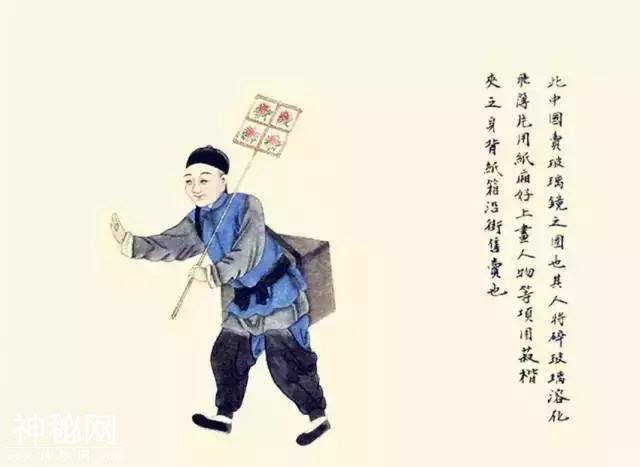 此中國賣玻璃鏡之圖也其人將碎玻璃溶化
成薄片用紙廂好上畫人物等項用菽楷
夾之身背紙箱沿街售賣也
神秘网